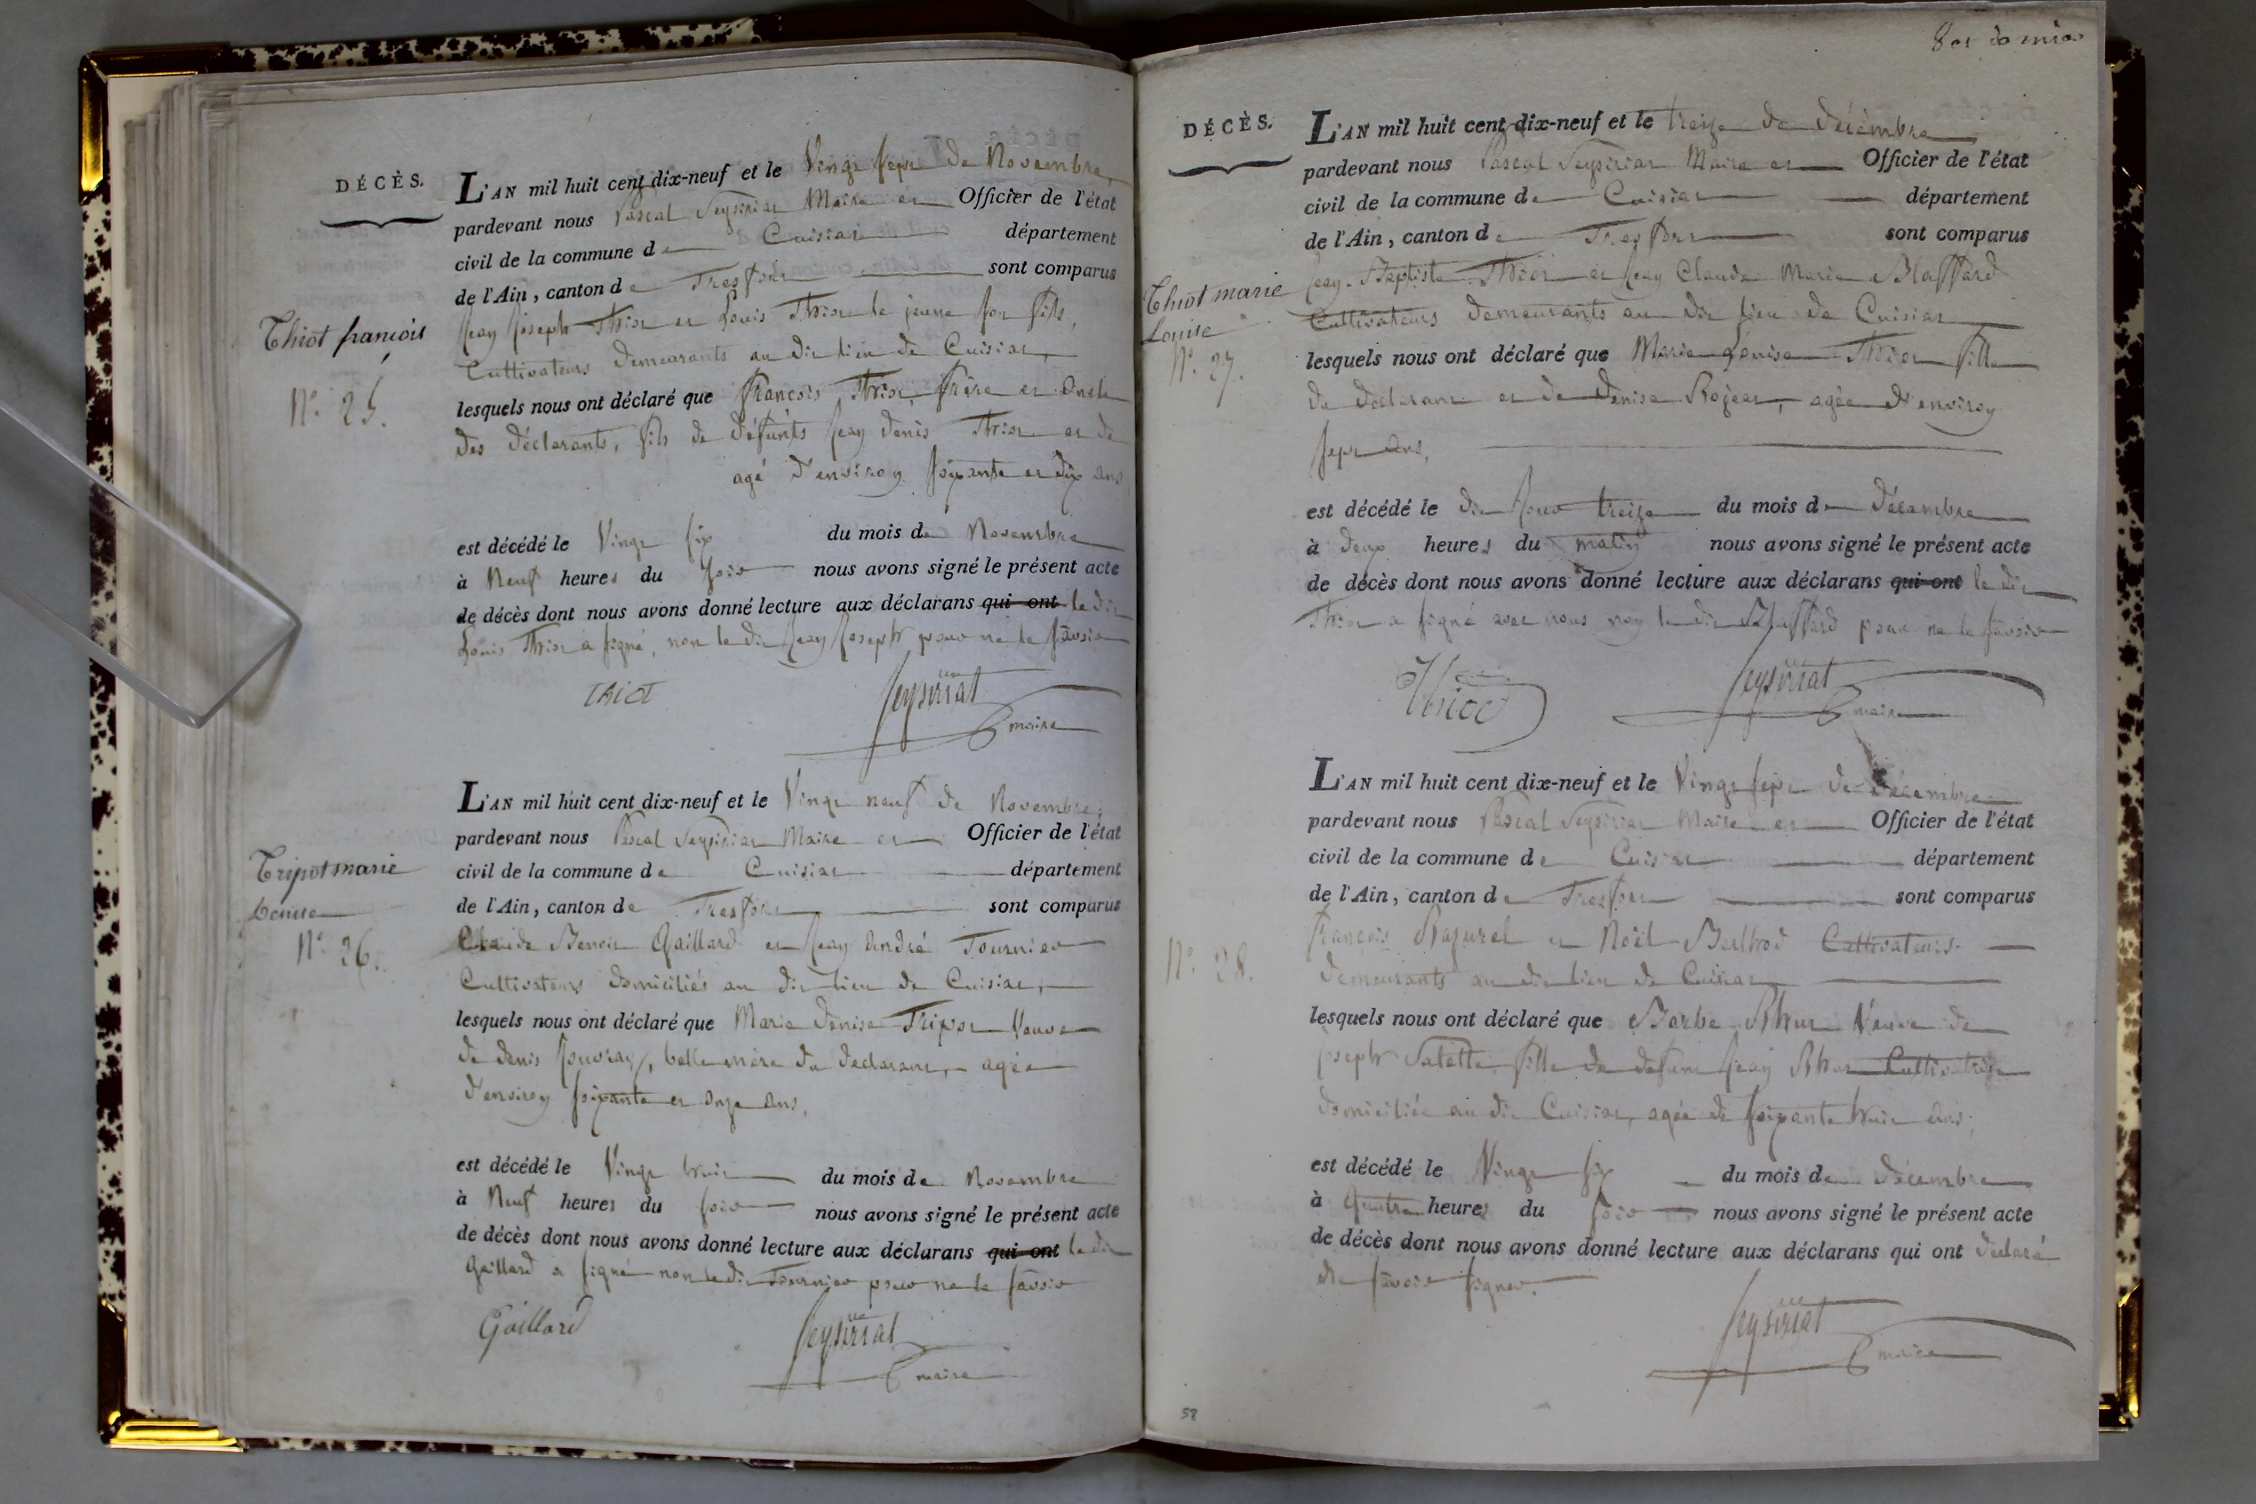 DÉCÈS.
L'AN mil huit cent dix-neuf et le Vingt sept de Novembre,
pardevant nous Pascal Seysiriat Maire et Officier de l'état
civil de la commune de Cuisiat département
de l'Ain, canton de Tresfort sont comparus
Thiot francois
N.° 25.
Jean Joseph Thiot et Louis Thiot le jeune son fils,
Cultivateurs demeurants au dit lieu de Cuisiat,
lesquels nous ont déclaré que François Thiot, frère et oncle
des déclarants, fils de défunts Jean denis Thiot et de
agé d'environ soixante et dix ans
est décédé le Vingt six du mois de Novembre
à Neuf heures du soir nous avons signé le présent acte
de décès dont nous avons donné lecture aux déclarans qui ont le dit
Louis Thiot a signé, non le dit Jean Joseph pour ne le savoir
thiot Seysiriat
maire
L'AN mil huit cent dix-neuf et le Vingt neuf de Novembre,
pardevant nous Pascal Seysiriat Maire et Officier de l'état
civil de la commune de Cuisiat département
de l'Ain, canton de Tresfort sont comparus
Tripot marie
denise
N.° 26.
Claude Benoit Gaillard et Jean André Tournier
Cultivateurs domiciliés au dit lieu de Cuisiat,
lesquels nous ont déclaré que Marie denise Tripot Veuve
de denis , belle mère du declarant, agée
d'environ soixante et onze ans,
est décédé le Vingt huit du mois de Novembre
à Neuf heures du soir nous avons signé le présent acte
de décès dont nous avons donné lecture aux déclarans qui ont le dit
Gaillard a signé non le dit Tournier pour ne le savoir
Gaillard Seysiriat
maire
DÉCÈS.
L'AN mil huit cent dix-neuf et le treize de décembre
pardevant nous Pascal Seysiriat Maire et Officier de l'état
civil de la commune de Cuisiat département
de l'Ain, canton de Tresfort sont comparus
Thiot marie
Louise
N.° 27.
Jean Baptiste Thiot et Jean Claude Marie Blaffard
Cultivateurs demeurants au dit lieu de Cuisiat
lesquels nous ont déclaré que Marie Louise Thiot fille
du declarant et de Denise , agée d'environ
sept ans,
est décédé le dit jour treize du mois de décembre
à deux heures du matin nous avons signé le présent acte
de décès dont nous avons donné lecture aux déclarans qui ont le dit
Thiot a signé avec nous non le dit Blaffard pour ne le savoir
Thiot Seysiriat
maire
L'AN mil huit cent dix-neuf et le Vingt sept de décembre
pardevant nous Pascal Seysiriat Maire et Officier de l'état
civil de la commune de Cuisiat département
de l'Ain, canton de Tresfort sont comparus
N.° 28.
François et Noël Berthod Cultivateurs
demeurants au dit lieu de Cuisiat
lesquels nous ont déclaré que Barbe Veuve de
joseph fille de defunt Jean Cultivatrice
domiciliée au dit Cuisiat, agée de soixante huit ans,
est décédé le Vingt six du mois de décembre
à quatre heures du soir nous avons signé le présent acte
de décès dont nous avons donné lecture aux déclarans qui ont declaré
ne savoir signer.
Seysiriat
maire
58